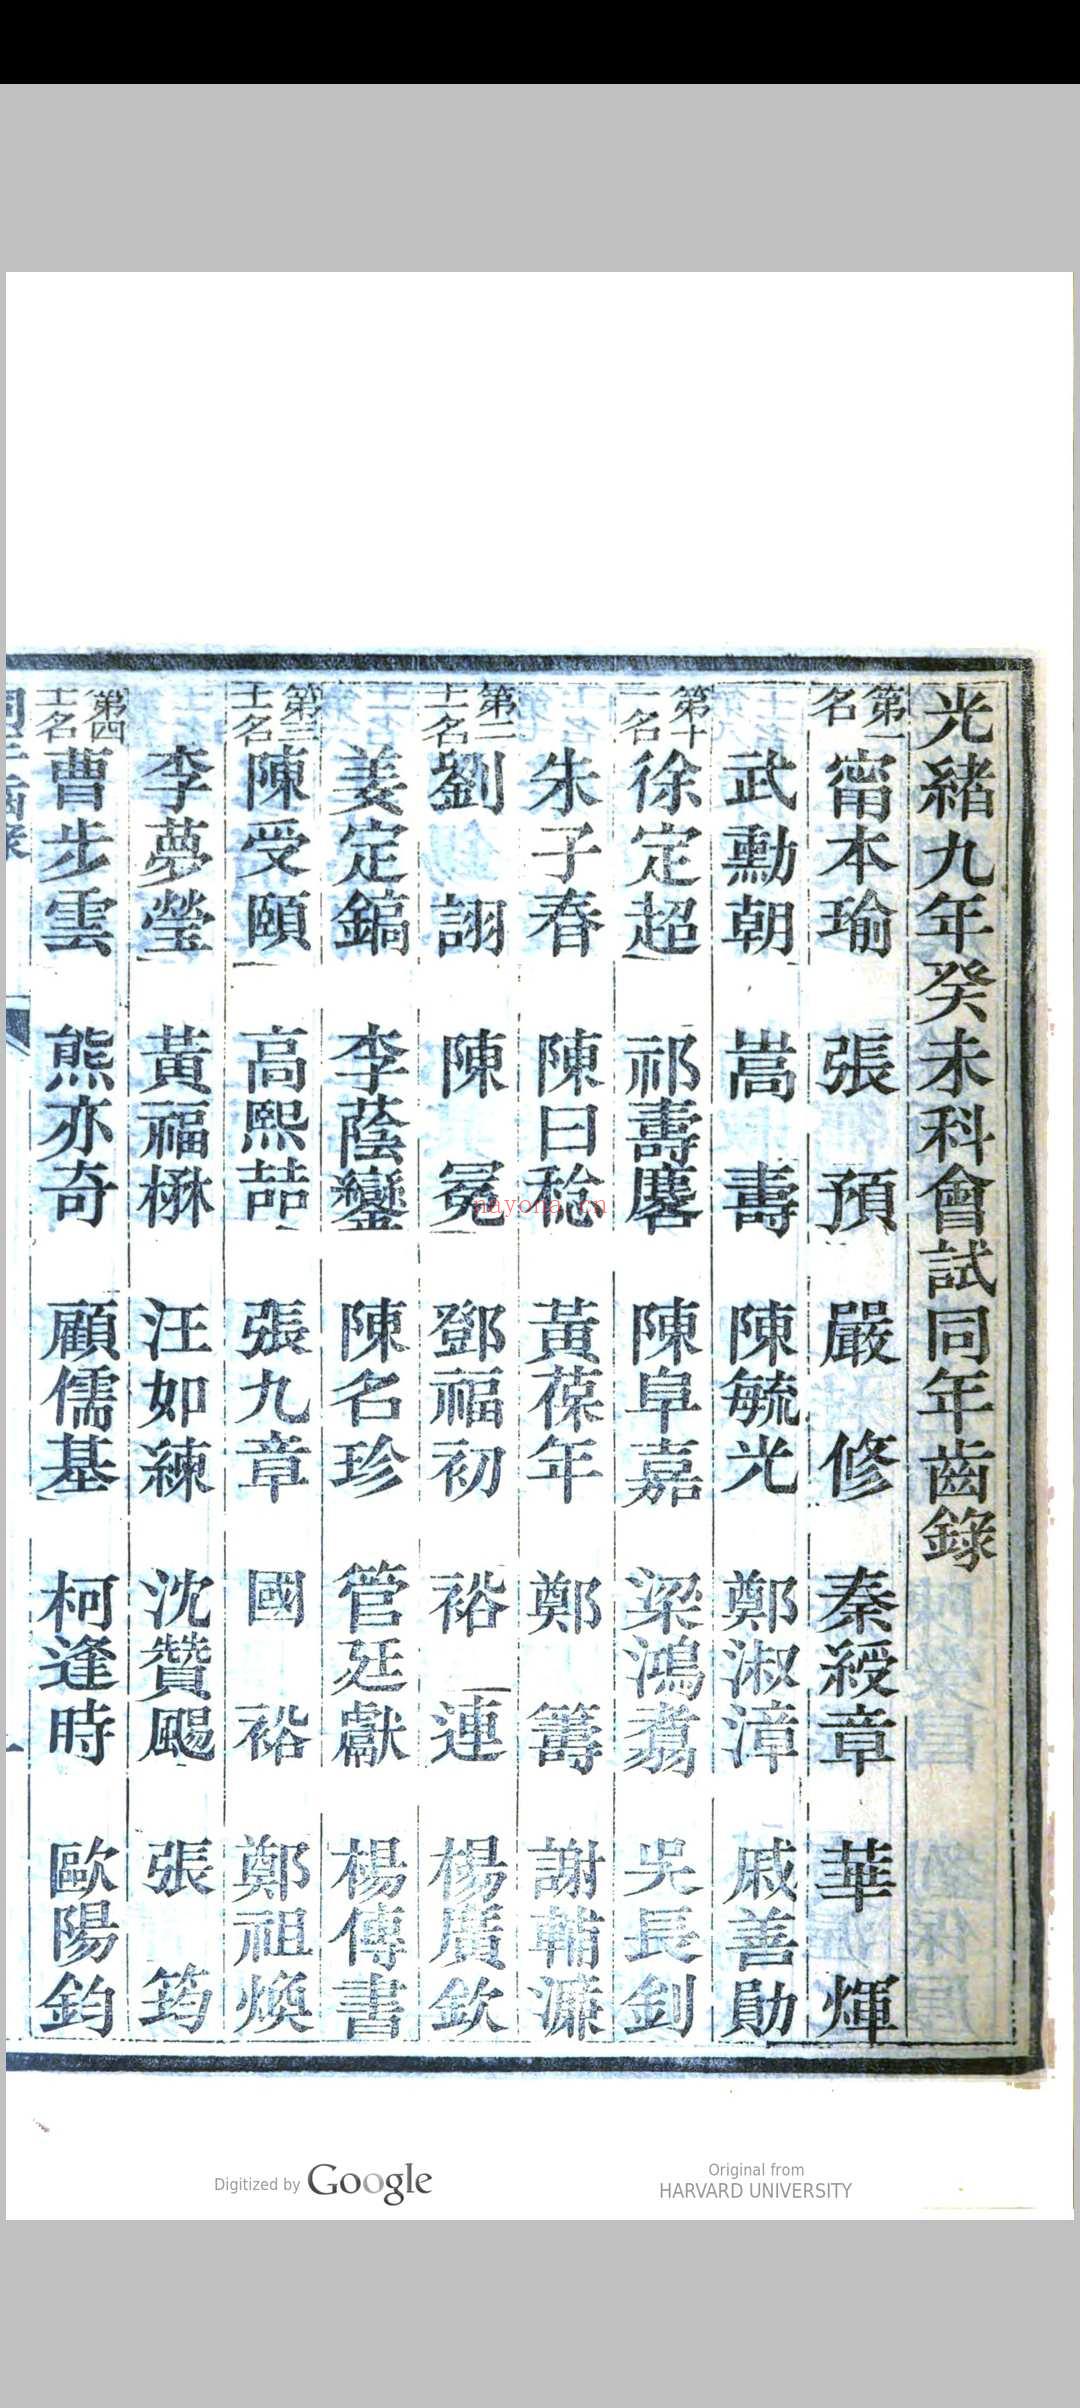 光緒九年癸未科會試同年齒錄
第一名 甯本瑜 張預 嚴修 秦綬章 華煇
武勳朝 嵩壽 陳毓光 鄭淑漳 戚善勛
第十一名 徐定超 祁壽麐 陳阜嘉 梁鴻翥 吳長釗
朱子春 陳曰稔 黃葆年 鄭籌 謝輔濂
第二十一名 劉詡 陳冕 鄧福初 裕連 楊廣欽
姜定鎬 李蔭鑾 陳名珍 管廷獻 楊傳書
第三十一名 陳受頤 高熙喆 張九章 國裕 鄭祖煥
李夢瑩 黃福楙 汪如練 沈贊颺 張筠
第四十一名 曹步雲 熊亦奇 顧儒基 柯逢時 歐陽鈞
nayona.cn
Digitized by Google
Original from
HARVARD UNIVERSITY